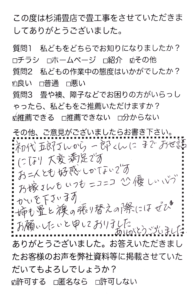 この度は杉浦畳店で畳工事をさせていただきま
してありがとうございました。
質問1 私どもをどちらでお知りになりましたか?
□チラシ □ホームページ □紹介 ☑その他
質問2 私どもの作業中の態度はいかがでしたか?
☑良い □普通 □悪い
質問3 畳や襖、障子などでお困りの方がいらっし
ゃったら、私どもをご推薦いただけますか?
☑推薦できる □推薦できない □分からない
その他、ご意見がございましたらお書き下さい。
初代五郎さんから一郎くんにまでお世話
になり大変満足です
お二人とも好感しかないです
お嫁さんもいつもニコニコ優しい心づ
かいを下さいます
姉も畳と襖の張り替えの際にはぜひ
お願いしたいと申しておりました
ありがとうございました
ありがとうございました。お答えいただきまし
たお客様のお声を弊社資料等に掲載させていた
だいてもよろしでしょうか?
☑許可する □匿名なら □許可しない